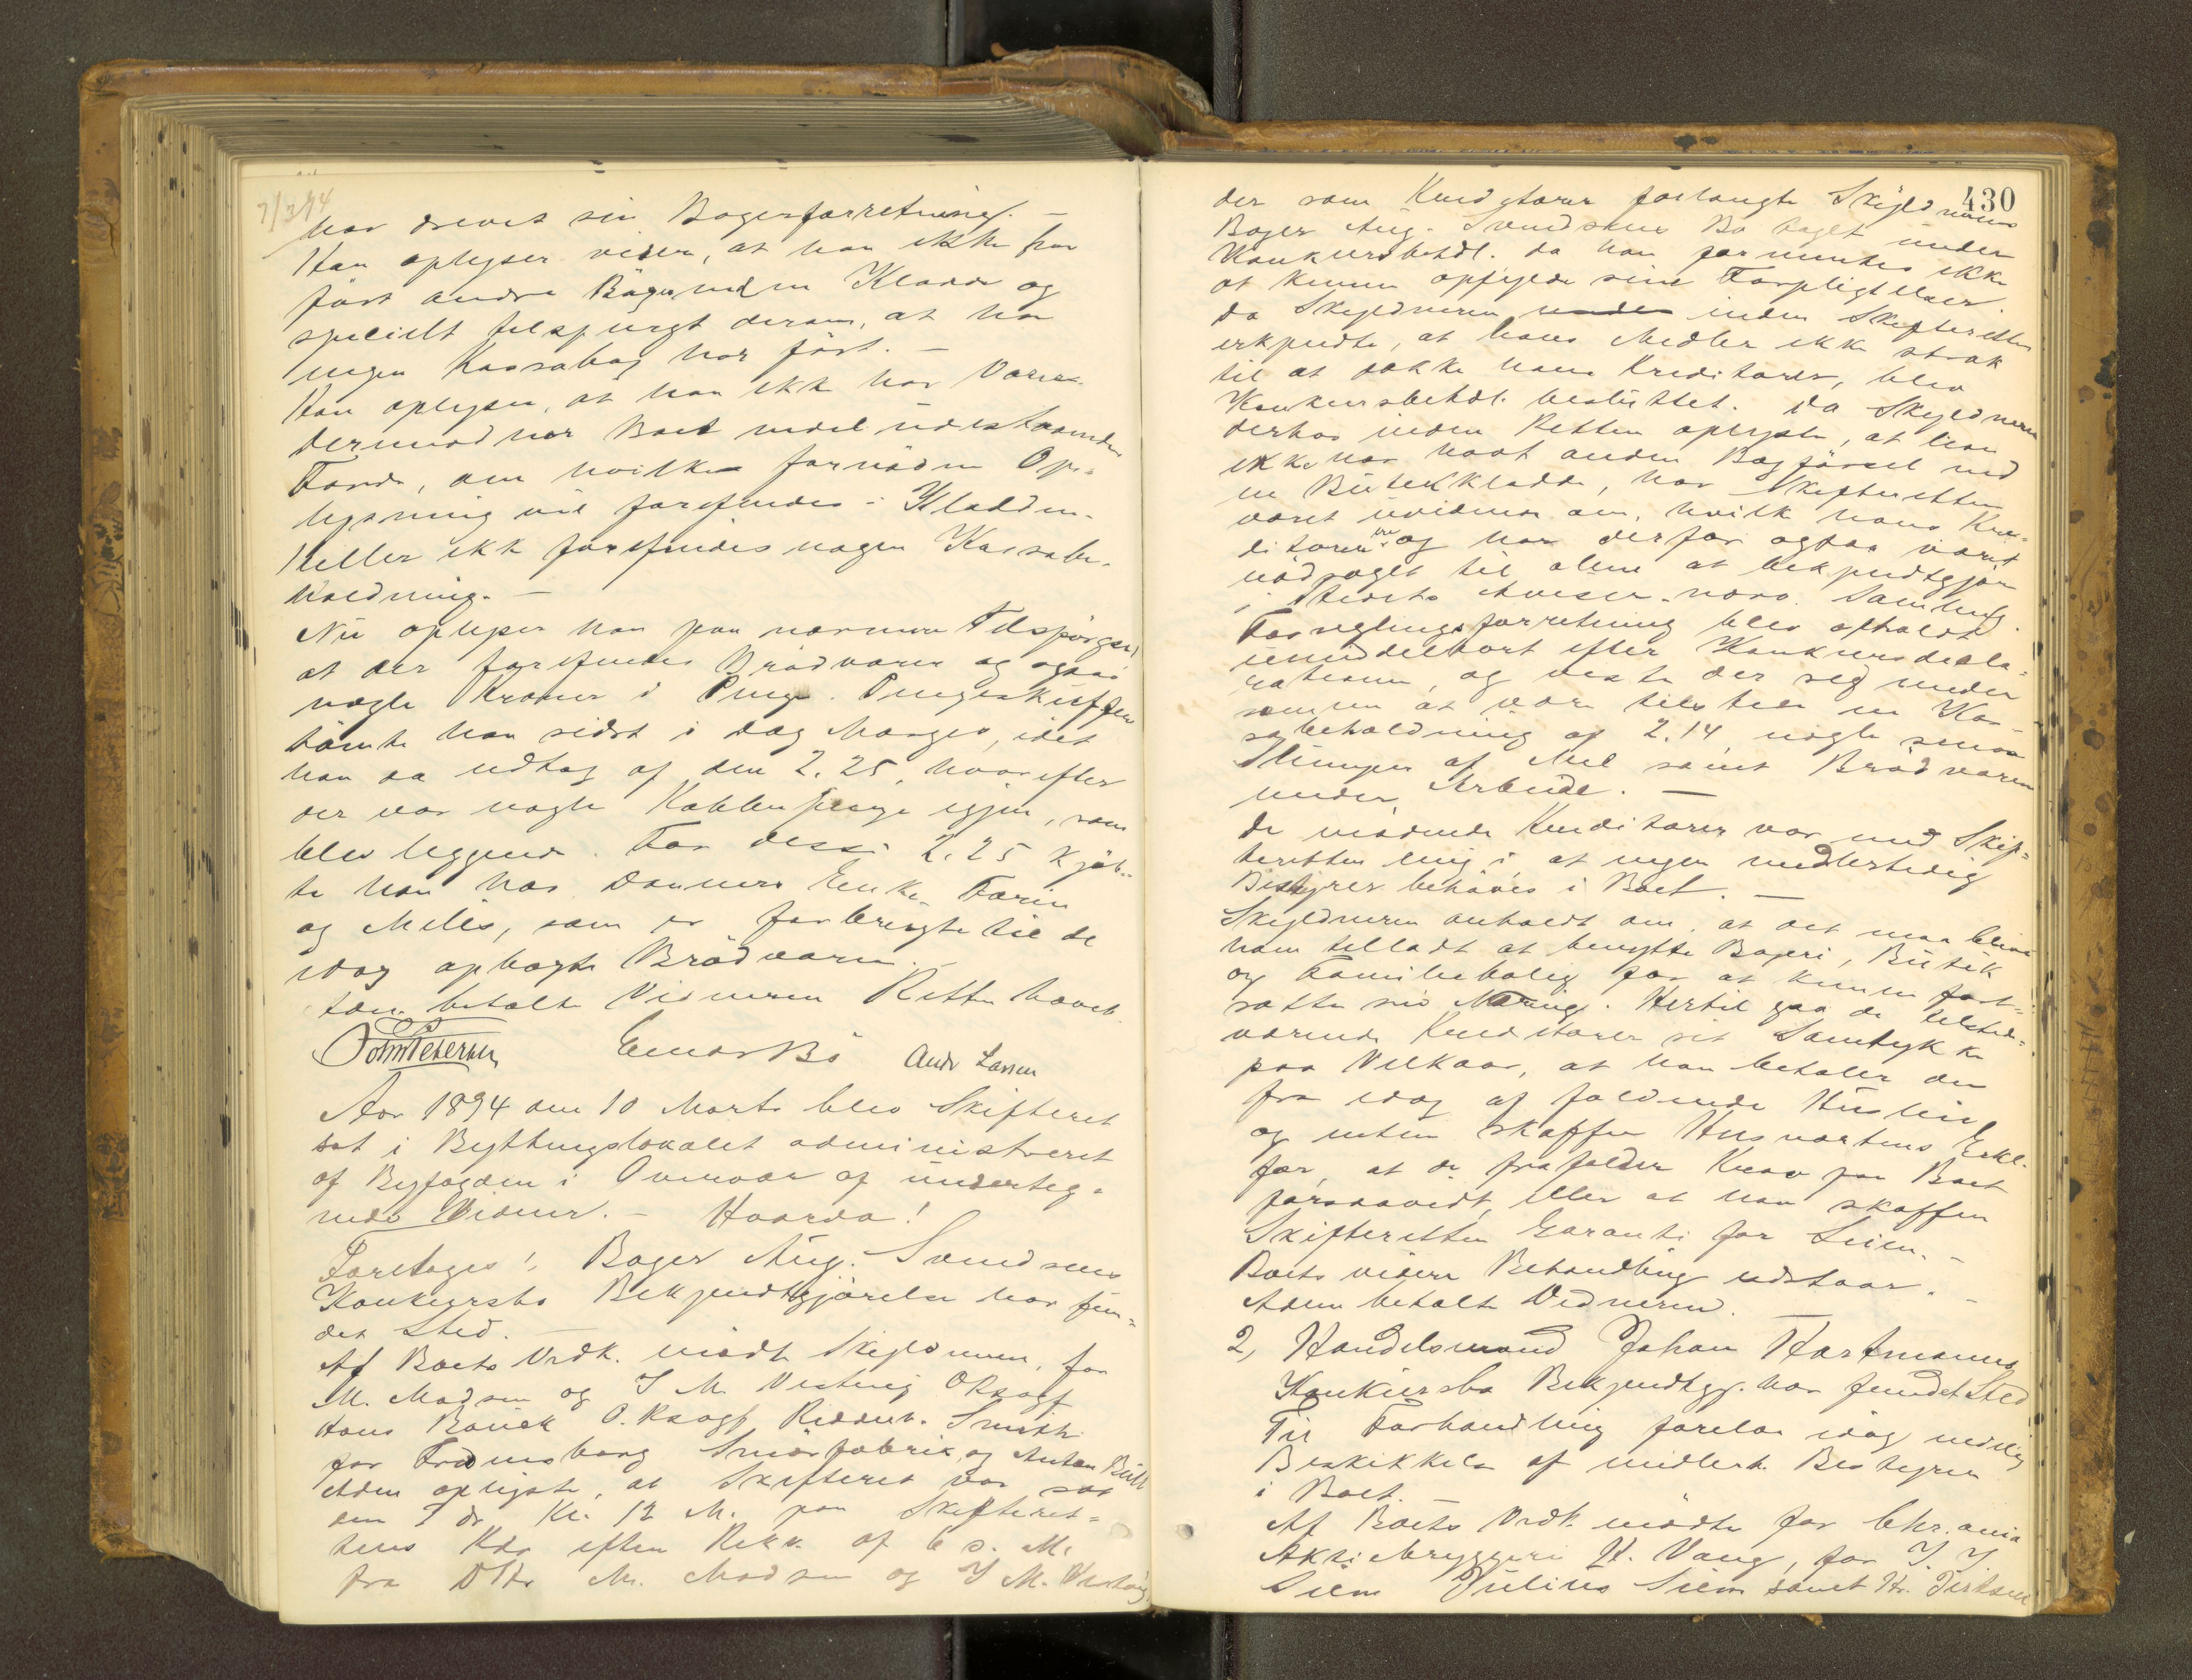 7/3 94
har drevet sin Bagerforretning. —
Han oplyser videre, at han ikke har
ført andre Bøger end en Kladde og
specielt tilspurgt derom, at han
ingen Kassabog har ført. —
Han oplyser, at han ikke har Varer
dermod har Boet endel udestaaende
Fordr, om hvilke fornøden Op-
lysning vil forefindes i Kladden.
Heller ikke forefindes nogen Kassabe-
holdning. —
Nu oplyser han paa nærmere Tilspørgsel,
at der forefindes Brødvarer og ogsaa
nogle Kroner i Penge. Pengeskuffen
tømte han sidst i dag Morges, idet
han da udtog af den 2.25, hvorefter
der var nogle Kobberpenge igjen, som
blev liggende. For disse 2.25 kjøb-
te han hos Danners Enke Farin
og Melis, som er forbrugte til de
idag opbagte Brødvarer.
Adm. betalte Vidnerne Retten hævet.
John Petersen Einar Bö Andr Larsen
Aar 1894 den 10 Marts blev Skifteret
sat i Bythingslokalet administreret
af Byfogden i Overvær af underteg-
nede Vidner. — Hvorda!
Foretages 1, Bager Aug. Svendsens
Konkursbo Bekjendtgjørelse har fun-
det Sted. —
Af Boets Vedk. mødte Skyldneren, for
M. Madsen og J M Vesteng ORsagf
Hans Bauck O.Rsagf Riddervs. Smith
for Fredensborg Smørfabrik, og Anton Bull
Adm oplyste, at Skifteret var sat
den 7 ds Kl. 12 M. paa Skifteret-
tens Kdr efter Rekv. af 6 s. M.
fra DHr M. Madsen og J M. Vesteng,
430
der som Kreditorer forlangte Skyldneren
Bager Aug. Svendsens Bo taget under
Konkursbehdl. da han formentes ikke
at kunne opfylde sine Forpligtelser
da Skyldneren inden Skifteretten
erkjendte, at hans Midler ikke strak
til at dække hans Kreditorer, blev
Konkursbehdl. besluttet. Da Skyldneren
derhos inden Retten oplyste, at han
ikke har havt anden Bogførsel end
en Butikkladde, har Skifteretten
været uvidende om, hvilke hans Kre-
ditorer ere og har derfor ogsaa været
nødsaget til alene at bekjendtgjøre
i Stedets Aviser nærv. Samling.
Forseglingsforretning blev afholdt
umiddelbart efter Konkursdekla-
rationen, og viste der sig under
samme at være tilstede en Kas-
sabeholdning af 2.14, nogle smaa
Slumper af Mel samt Brødvarer
under Arbeide. —
De mødende Kreditorer var med Skif-
teretten enig i, at ingen midlertidig
Bestyrer behøves i Boet. —
Skyldneren anholdt om, at det maa blive
ham tilladt at benytte Bageri, Butik
og Familiebolig for at kunne fort-
sætte sin Næring. Hertil gav de tilstede-
værende Kreditorer sit Samtykke
paa Vilkaar, at han betaler den
fra idag af faldende Husleie
og enten skaffer Husværtens Erkl.
for, at de frafalder Krav paa Boet
forsaavidt, eller at han skaffer
Skifteretten Garanti for Leien. —
Boets videre Behandling udstaar. —
Adm betalte Vidnerne.
2, Handelsmand Johan Hartmanns
Konkursbo Bekjendtgj. har fundet Sted
Til Forhandling forelaa idag endelig
Beskikkelse af midlert. Bestyrer
i Boet.
Af Boets Vedk. mødte for Chr.ania
Aktiebryggeri H. Vang, for J. J.
Siem Julius Siem samt Hr.